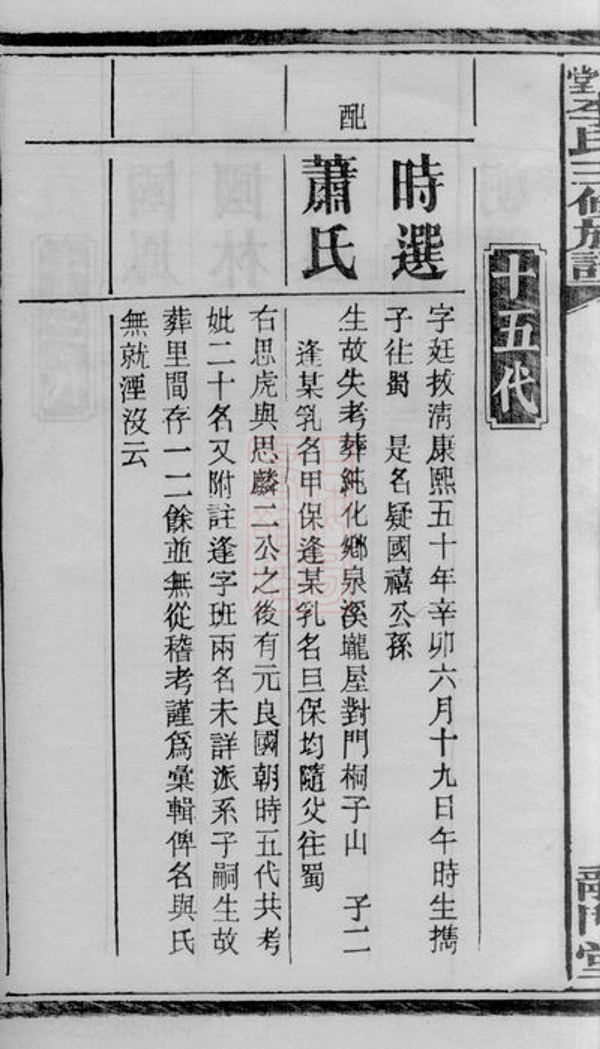 李氏三修族譜
十五代
時選
字廷拔淸康熙五十年辛卯六月十九日午時生攜
子往蜀 是名疑國禧公孫
配
蕭氏
生故失考葬純化鄉泉溪壠屋對門桐子山 子二
逢某乳名甲保逢某乳名旦保均隨父往蜀
右思虎與思麟二公之後有元良國朝時五代共考
妣二十名又附註逢字班兩名未詳派系子嗣生故
葬里間存一二餘並無從稽考謹爲彙輯俾名與氏
無就湮沒云